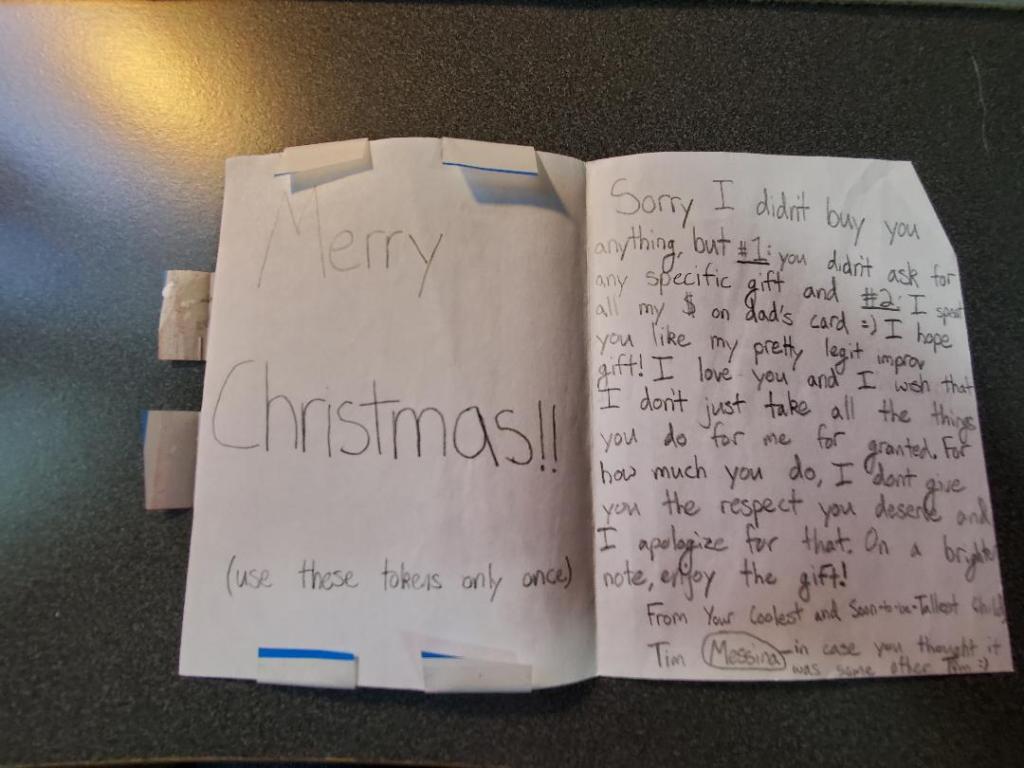 Merry
Christmas!!
(use these tokens only once)
Sorry I didn't buy you
anything, but #1: you didn't ask for
any specific gift and #2: I spent
all my $ on dad's card =) I hope
you like my pretty legit improv
gift! I love you and I wish that
I don't just take all the things
you do for me for granted. For
how much you do, I dont give
you the respect you deserve and
I apologize for that. On a brighter
note, enjoy the gift!
From Your Coolest and Soon-to-be-Tallest Child,
Tim Messina - in case you thought it
was some other Tim =)